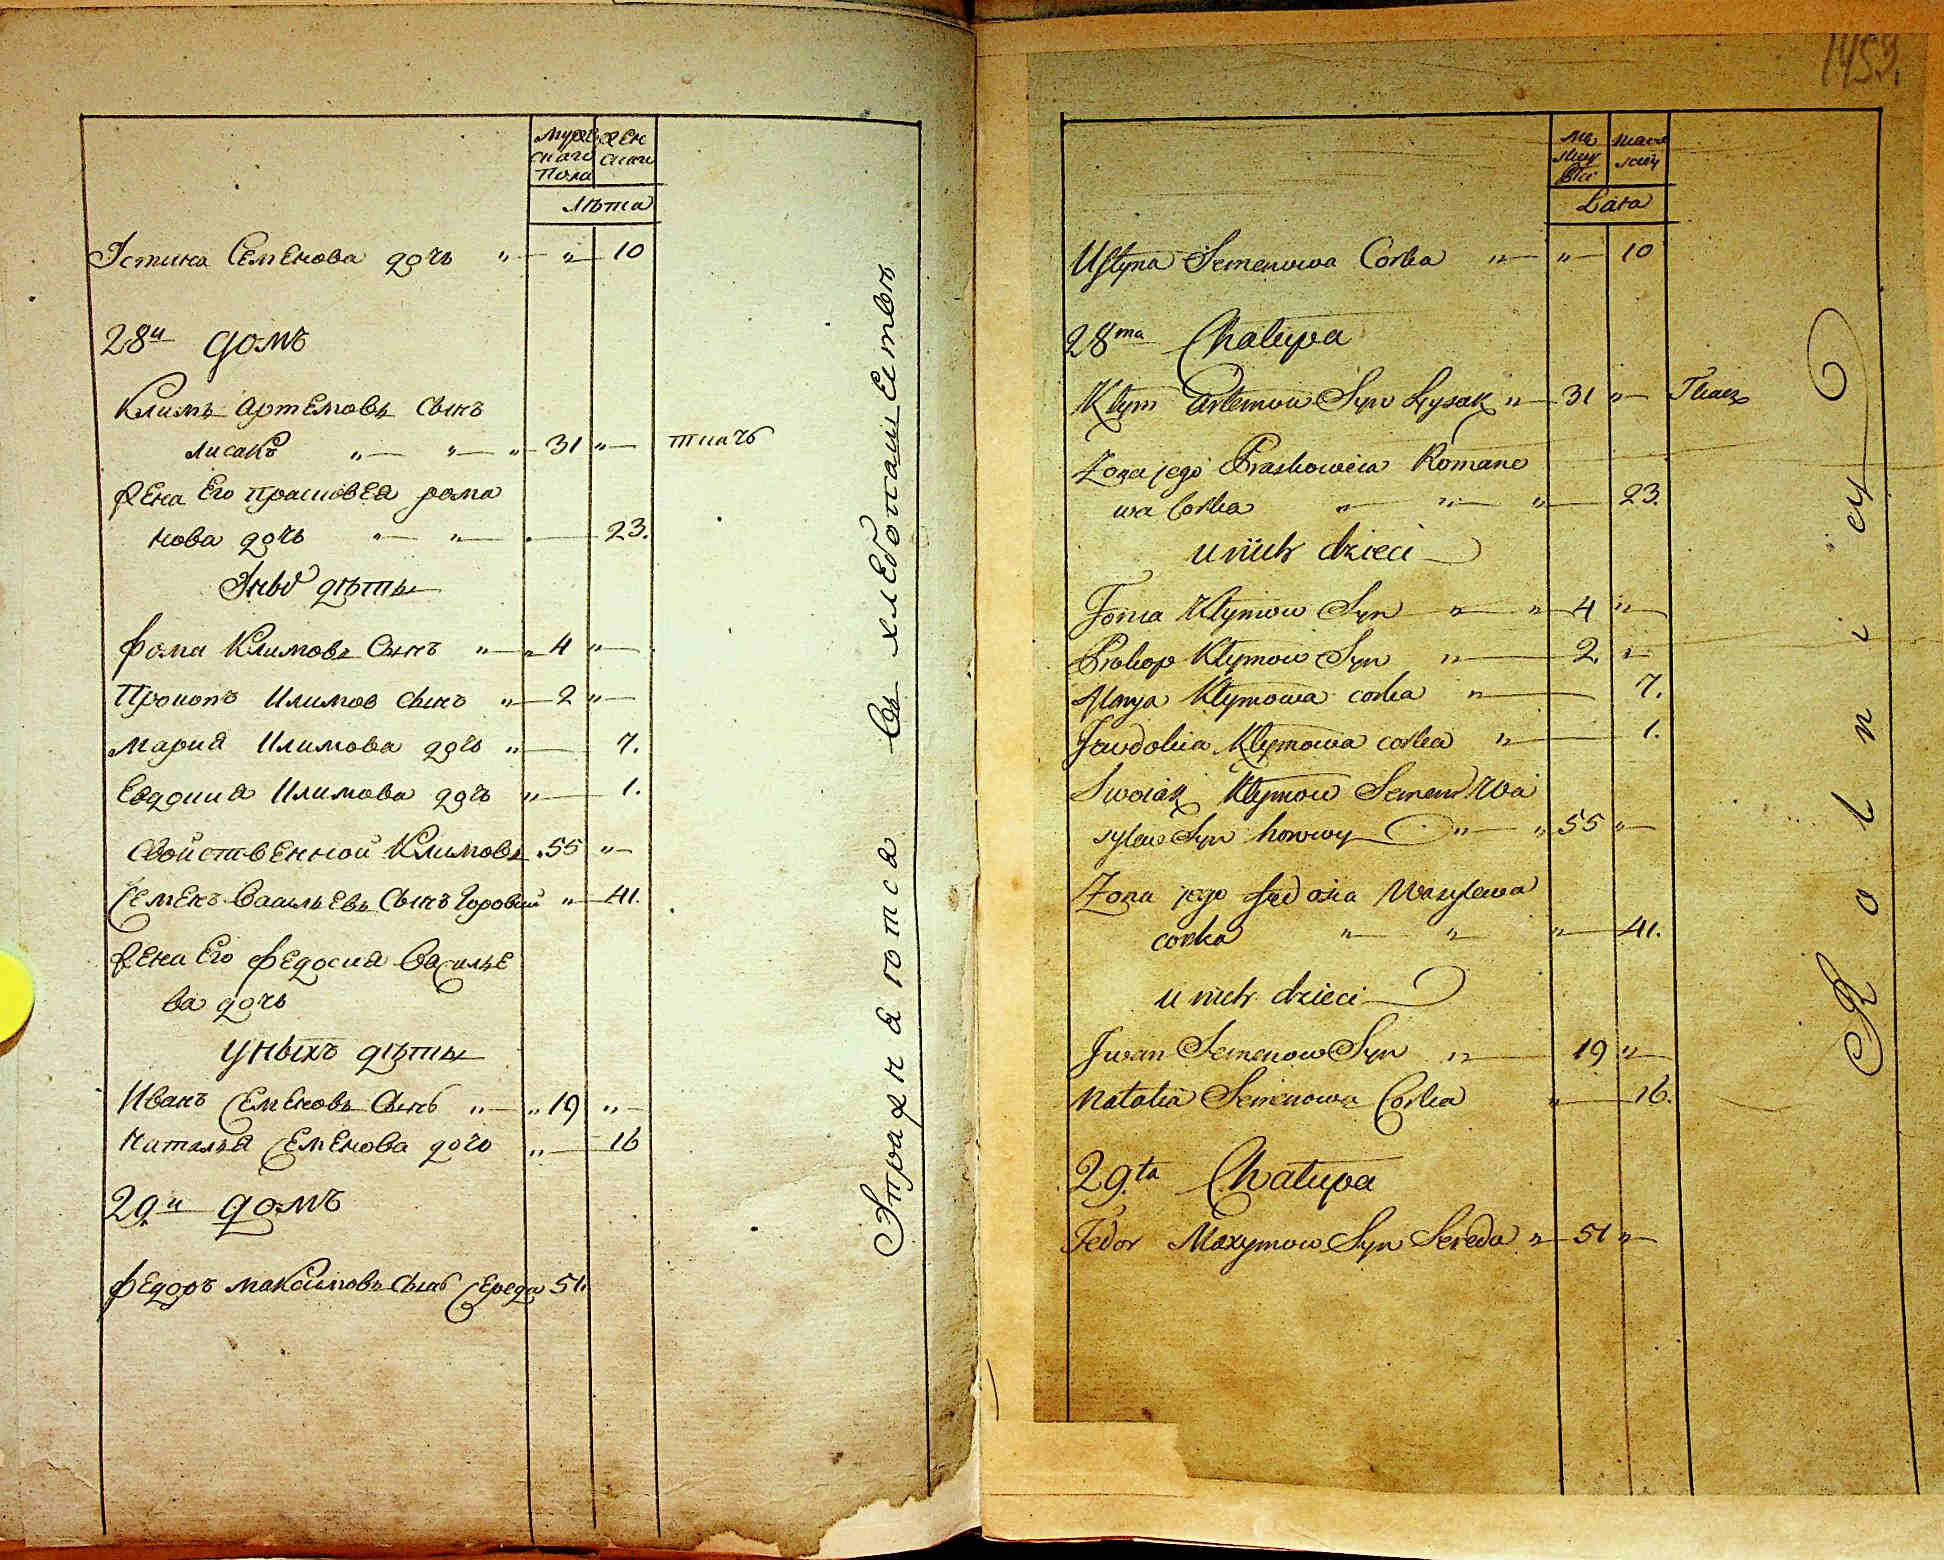 Мужескаго Пола
Женскаго
Лѣта
Устина Семенова дочъ " " 10
28й домъ
Климъ Артемовъ сынъ
лисакъ " " " 31 " ткачъ
жена Его прасковея рома
нова дочъ " " 23.
Унихъ дѣты
фома Климовъ Сынъ " " 4 "
Прокопъ Климов сынъ " 2 "
Мария Климова дочъ " 7.
Евдокия Климова дочъ " 1.
Свойственной Климовъ " 55 "
Семенъ Васильевъ Сынъ Горовый " 41.
жена Его Федосия Василье
ва дочъ
уныхъ дѣты
Иванъ Семеновъ Сынъ " " 19 "
Наталья Семенова дочъ " 16
29й домъ
Федоръ Максимовъ Сынъ Середа 51.
Упражняютса въ хлебопашествѣ
1453.
Lata
Ustyna Semenowa Corka " " 10
28ma Chałupa
Kłym Artemow Syn Łysak " 31 " Tkacz
Zona jego Praskowia Romano
wa Corka " " " 23.
u nich dzieci
Foma Kłymow Syn " " 4 "
Prokop Kłymow Syn " 2. "
Marya Kłymowa corka " 7.
Jawdokia Kłymowa corka " 1.
Swoiak Kłymow Semen Wa
sylew Syn horowy " " 55 "
Zona jego Fedosia Wasylewa
corka " " " 41.
u nich dzieci
Jwan Semenow Syn " 19 "
Natalia Semenowa Corka " 16.
29.ta Chałupa
Fedor Maxymow Syn Sereda " 51 "
Rolniey